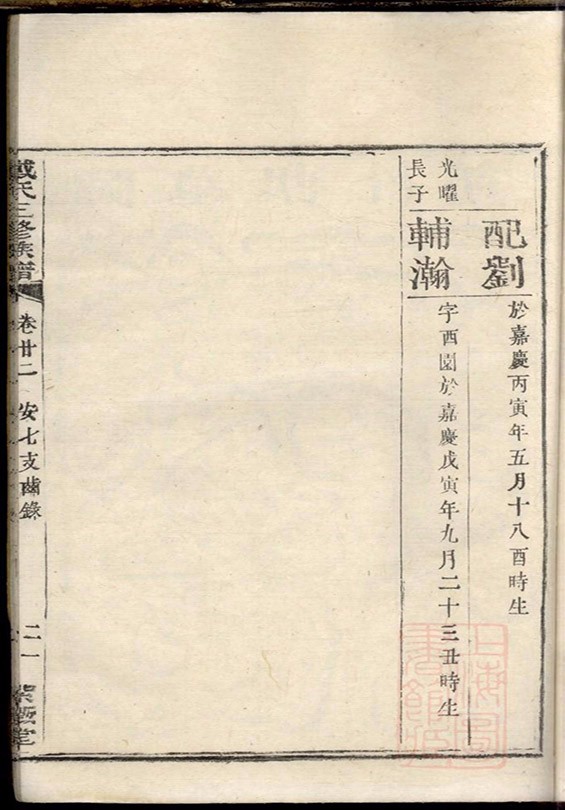 配劉
於嘉慶丙寅年五月十八酉時生
光曜
長子
輔瀚
字西園於嘉慶戊寅年九月二十三丑時生
戴氏三修族譜
卷廿二
安七支齒錄
二一
上海圖
書館藏